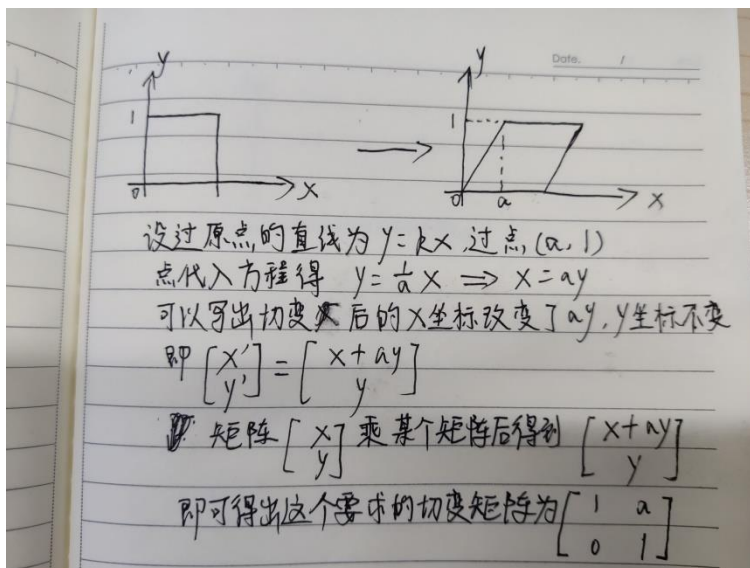 Date. /
y
1
0
x
y
1
0
a
x
设过原点的直线为 y=kx,过点(a,1)
点代入方程得 y=1/a x ⇒ x=ay
可以写出切变后的x坐标改变了ay,y坐标不变
即 [x' y'] = [x+ay y]
矩阵 [x y] 乘某个矩阵后得到 [x+ay y]
即可得出这个要求的切变矩阵为 [1 a 0 1]